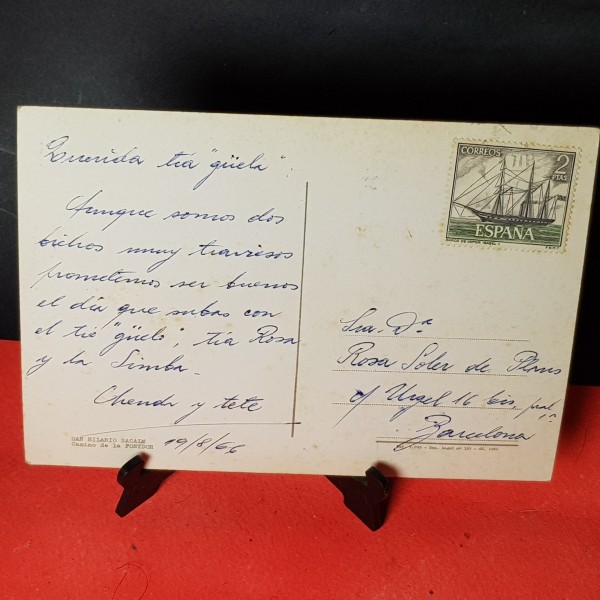 Querida tía "güela":
Aunque somos dos
bichos muy traviesos
prometemos ser buenos
el día que subas con
el tie "güelo", tía Rosa
y la Simba.
Chenda y tete
SAN HILARIO SACALM
Camino de la FONTDOR
19/8/66
CORREOS
2
PTAS
ESPAÑA
Sra. Dª
Rosa Soler de Plans
c/ Urgel 16 bis,
Barcelona